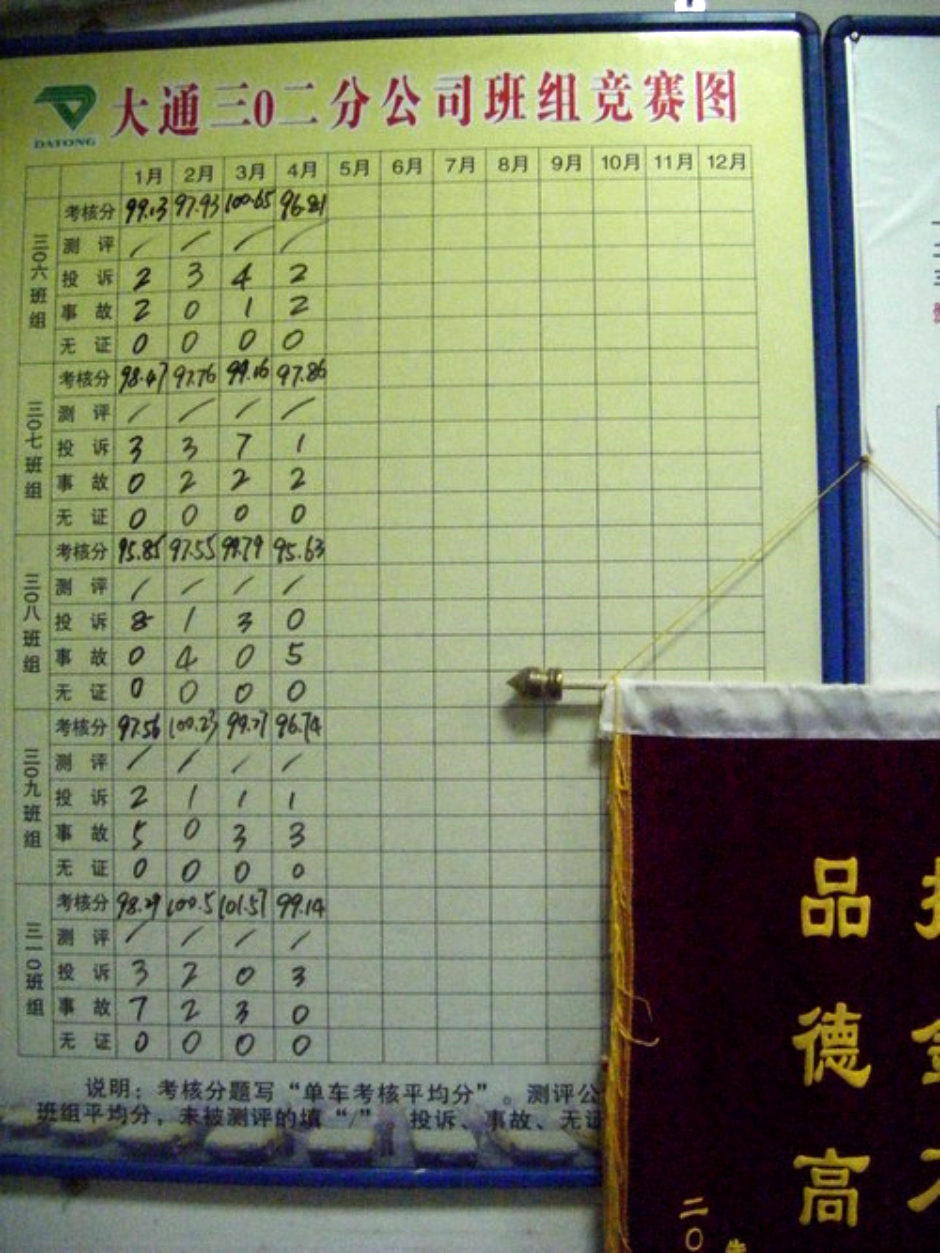 大通三0二分公司班组竞赛图
DATONG
1月 2月 3月 4月 5月 6月 7月 8月 9月 10月 11月 12月
三0六班组
考核分 99.13 97.93 100.65 96.81
测评 / / / /
投诉 2 3 4 2
事故 2 0 1 2
无证 0 0 0 0
三0七班组
考核分 98.47 97.76 99.16 97.86
测评 / / / /
投诉 3 3 7 1
事故 0 2 2 2
无证 0 0 0 0
三0八班组
考核分 95.85 97.55 99.79 95.63
测评 / / / /
投诉 8 1 3 0
事故 0 4 0 5
无证 0 0 0 0
三0九班组
考核分 97.56 100.23 99.27 96.74
测评 / / / /
投诉 2 1 1 1
事故 5 0 3 3
无证 0 0 0 0
三一0班组
考核分 98.29 100.5 101.57 99.14
测评 / / / /
投诉 3 2 0 3
事故 7 2 3 0
无证 0 0 0 0
说明：考核分题写“单车考核平均分”。测评公
班组平均分，未被测评的填“/” 投诉、事故、无证
品德高
二0